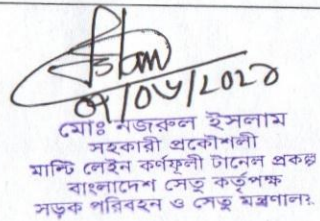 মোঃ নজরুল ইসলাম
সহকারী প্রকৌশলী
মাল্টি লেইন কর্ণফুলী টানেল প্রকল্প
বাংলাদেশ সেতু কর্তৃপক্ষ
সড়ক পরিবহন ও সেতু মন্ত্রণালয়